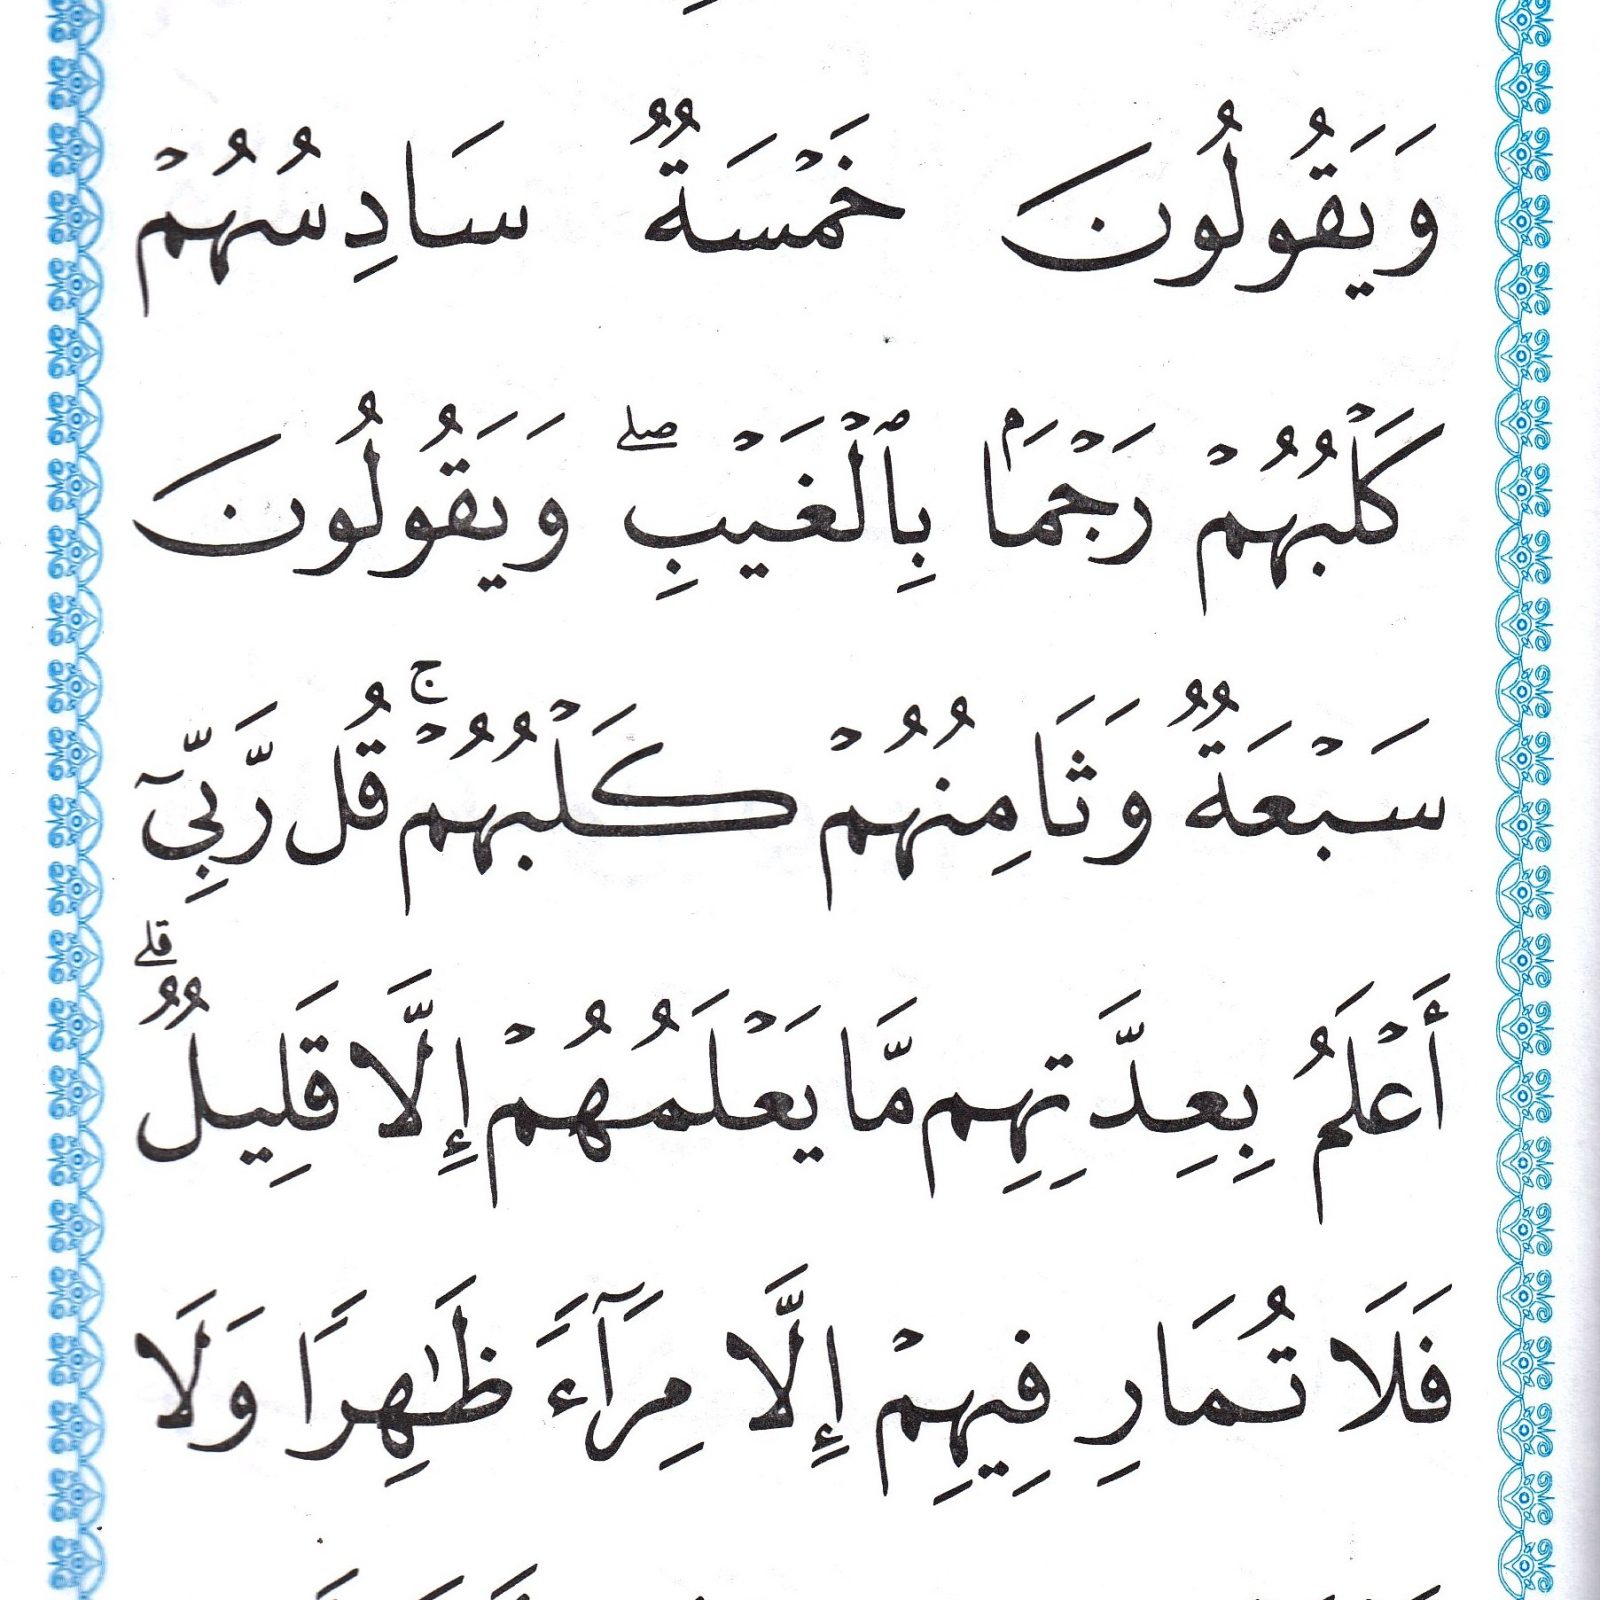 وَيَقُولُونَ خَمْسَةٌ سَادِسُهُمْ
كَلْبُهُمْ رَجْمًۢا بِٱلْغَيْبِ ۖ وَيَقُولُونَ
سَبْعَةٌ وَثَامِنُهُمْ كَلْبُهُمْ ۚ قُل رَّبِّىٓ
أَعْلَمُ بِعِدَّتِهِم مَّا يَعْلَمُهُمْ إِلَّا قَلِيلٌ ۗ
فَلَا تُمَارِ فِيهِمْ إِلَّا مِرَآءً ظَٰهِرًا وَلَا